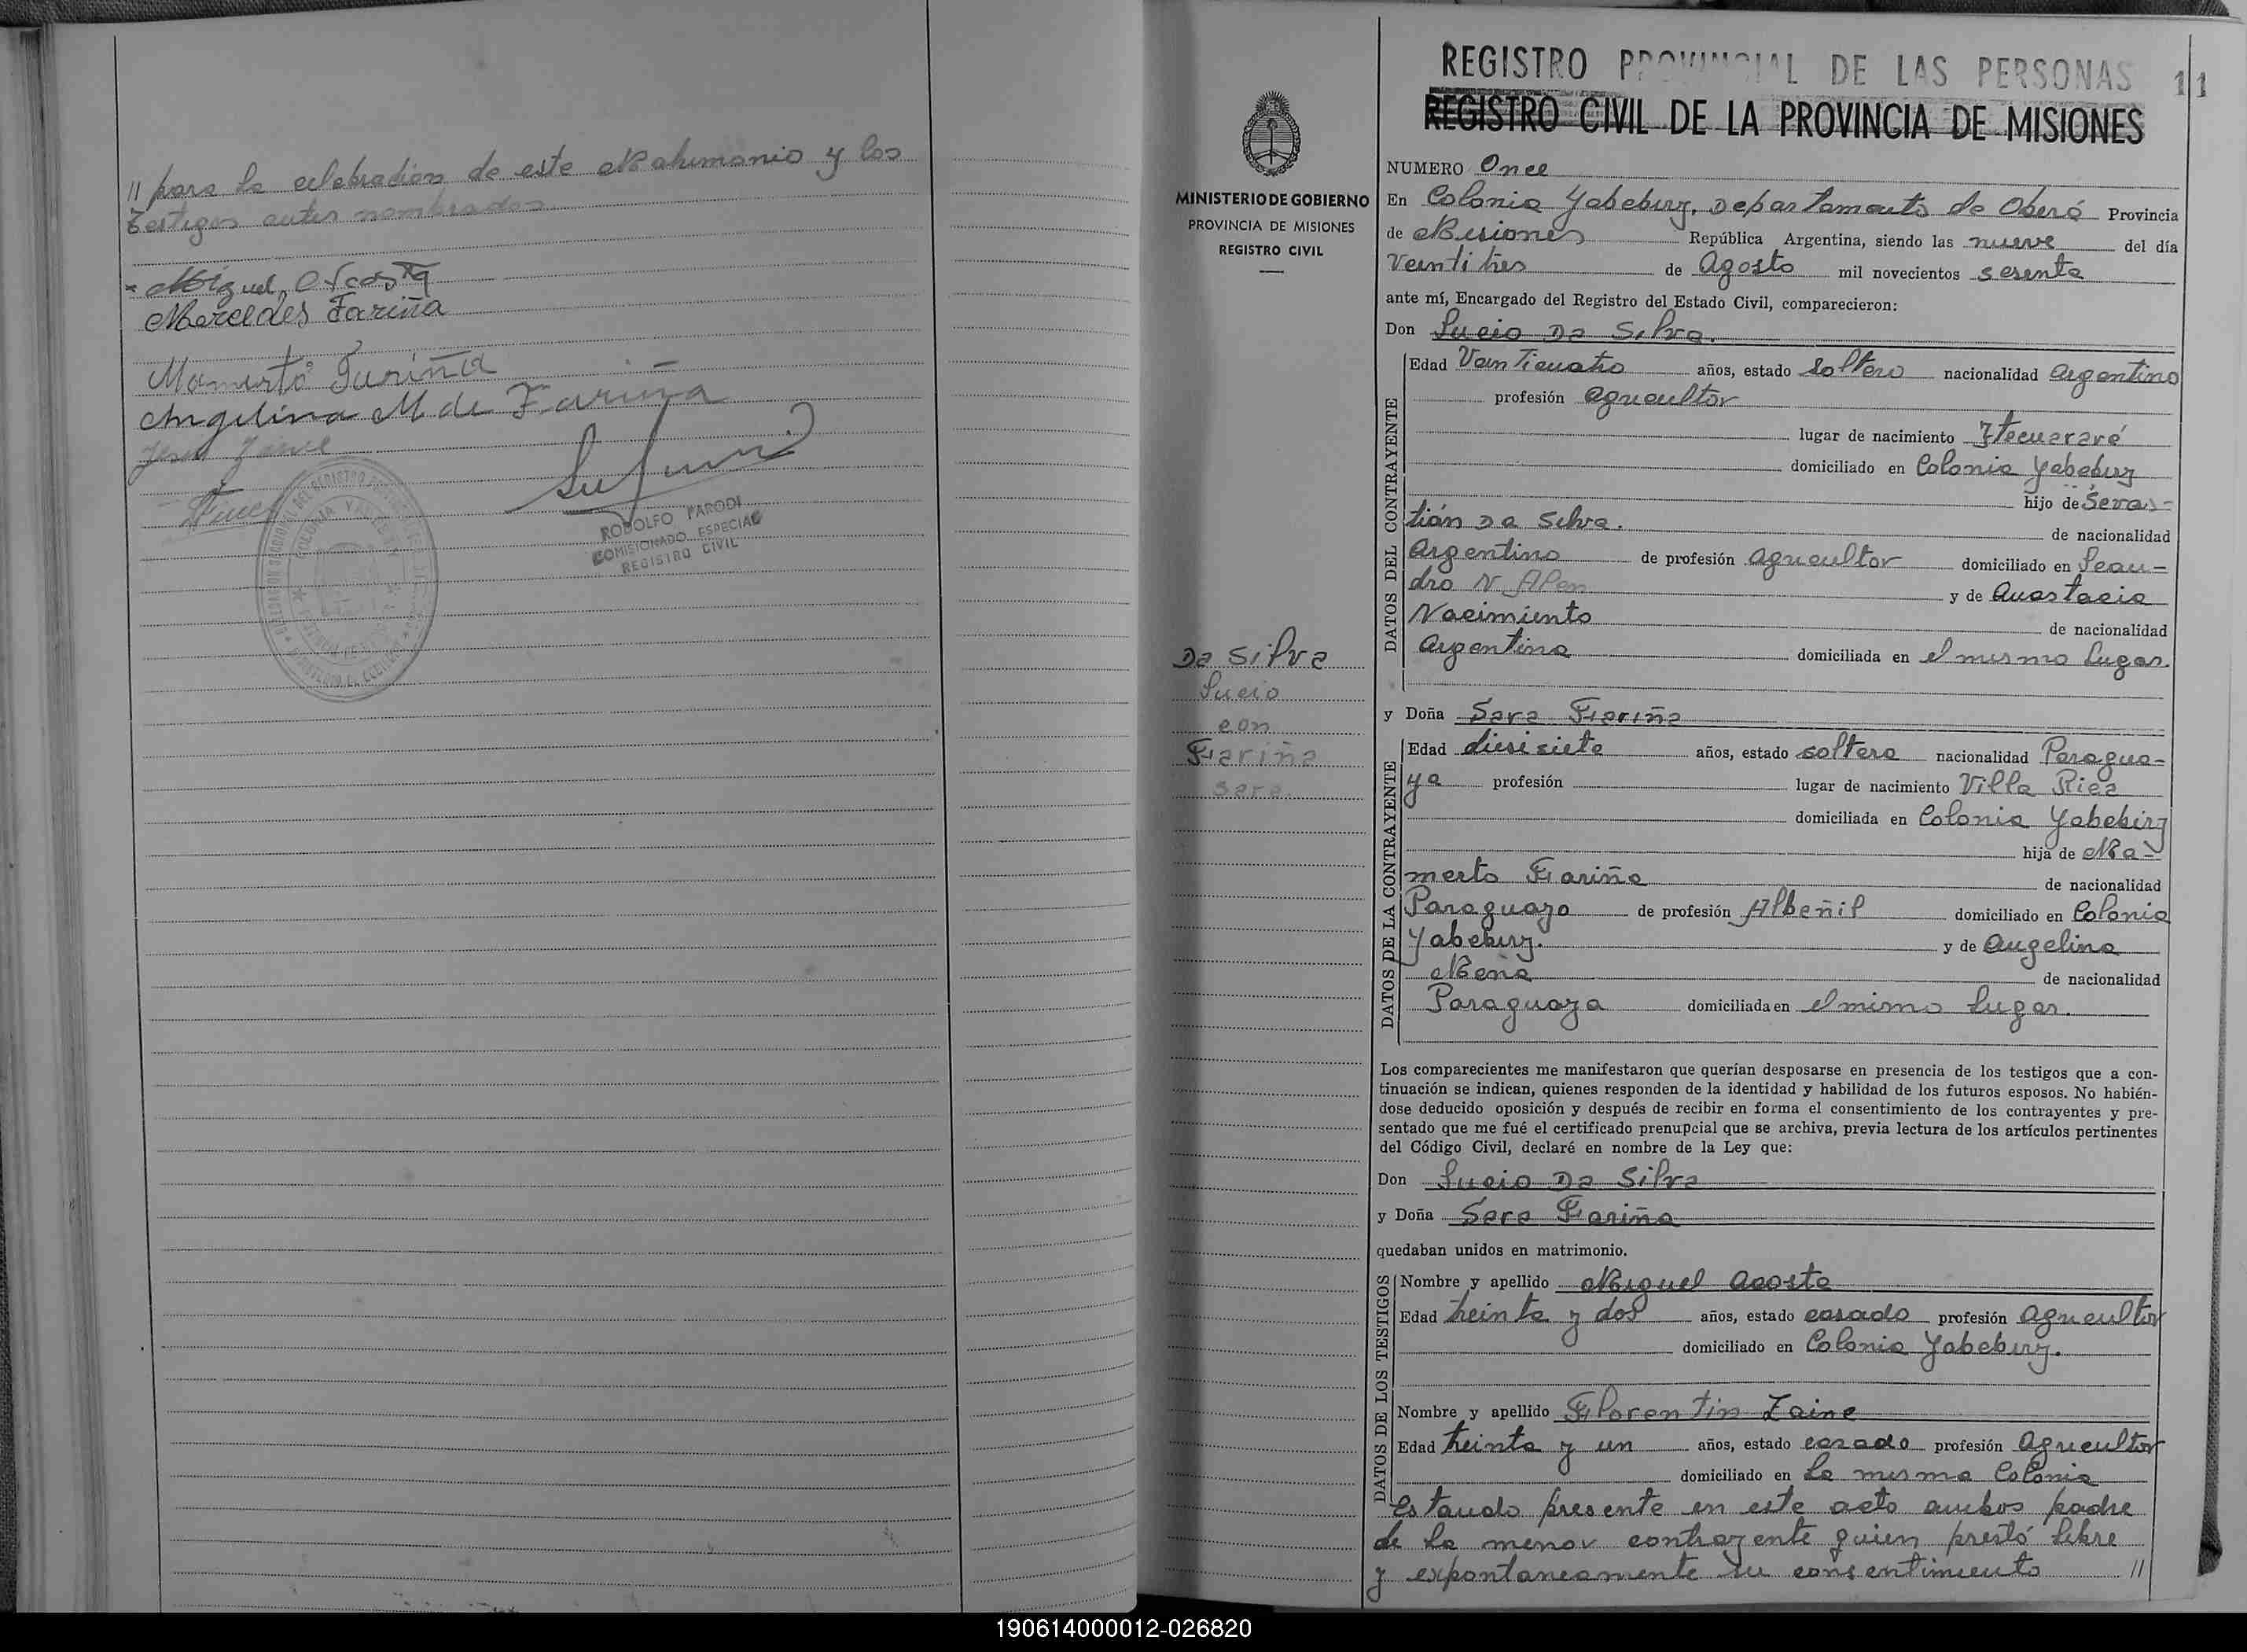 // para la celebración de este Matrimonio y los
testigos antes nombrados
Miguel Acosta
Mercedes Fariña
Mamerto Fariña
Angelina M de Fariña
RODOLFO PARODI
COMISIONADO ESPECIAL
REGISTRO CIVIL
MINISTERIO DE GOBIERNO
PROVINCIA DE MISIONES
REGISTRO CIVIL
Da Silva
Lucio
con
Fariña
Sara
REGISTRO PROVINCIAL DE LAS PERSONAS 11
REGISTRO CIVIL DE LA PROVINCIA DE MISIONES
NUMERO Once
En Colonia Yabebiry, Departamento de Oberá Provincia
de Misiones República Argentina, siendo las nueve del día
Veintitres de Agosto mil novecientos sesenta
ante mí, Encargado del Registro del Estado Civil, comparecieron:
Don Lucio Da Silva.
DATOS DEL CONTRAYENTE
Edad Veinticuatro años, estado soltero nacionalidad Argentino
profesión agricultor
lugar de nacimiento Itacuararé
domiciliado en Colonia Yabebiry
hijo de Sevas-
tián Da Silva. de nacionalidad
Argentino de profesión agricultor domiciliado en Lean-
dro N Alem y de Anastacia
Nacimiento de nacionalidad
Argentina domiciliada en el mismo lugar.
y Doña Sara Fariña
DATOS DE LA CONTRAYENTE
Edad diesisiete años, estado soltera nacionalidad Paragua-
ya profesión lugar de nacimiento Villa Rica
domiciliada en Colonia Yabebiry
hija de Ma-
merto Fariña de nacionalidad
Paraguayo de profesión Albañil domiciliado en Colonia
Yabebiry. y de Angelina
Mena de nacionalidad
Paraguaya domiciliada en el mimo lugar.
Los comparecientes me manifestaron que querían desposarse en presencia de los testigos que a con-
tinuación se indican, quienes responden de la identidad y habilidad de los futuros esposos. No habién-
dose deducido oposición y después de recibir en forma el consentimiento de los contrayentes y pre-
sentado que me fué el certificado prenupcial que se archiva, previa lectura de los artículos pertinentes
del Código Civil, declaré en nombre de la Ley que:
Don Lucio Da Silva
y Doña Sara Fariña
quedaban unidos en matrimonio.
DATOS DE LOS TESTIGOS
Nombre y apellido Miguel Acosta
Edad treinta y dos años, estado casado profesión agricultor
domiciliado en Colonia Yabebiry.
Nombre y apellido Florentin Zaine
Edad treinta y un años, estado casado profesión agricultor
domiciliado en la misma Colonia
Estando presente en este acto ambos padre
de la menor contrayente quien prestó libre
y expontaneamente su consentimiento //
190614000012-026820